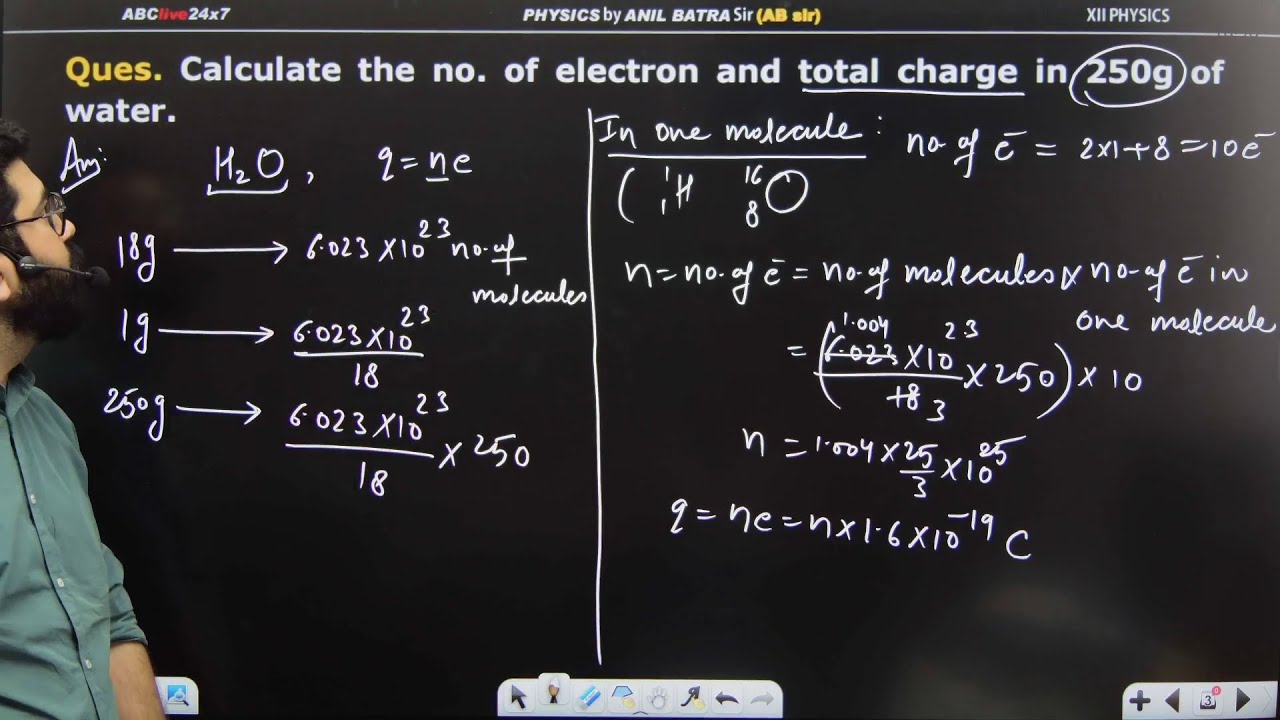 ABClive24x7
PHYSICS by ANIL BATRA Sir (AB sir)
XII PHYSICS
Ques. Calculate the no. of electron and total charge in 250g of
water.
Ans:
H₂O , q = ne
18g → 6.023 × 10²³ no. of
molecules
1g → 6.023 × 10²³ / 18
250g → 6.023 × 10²³ / 18 × 250
In one molecule : no. of e⁻ = 2×1+8 = 10e⁻
( ¹₁H ¹⁶₈O
n = no. of e⁻ = no. of molecules × no. of e⁻ in
one molecule
1.004
= ( 6.023 × 10²³ / 18 3 × 250 ) × 10
n = 1.004 × 25/3 × 10²⁵
q = ne = n × 1.6 × 10⁻¹⁹ C
3